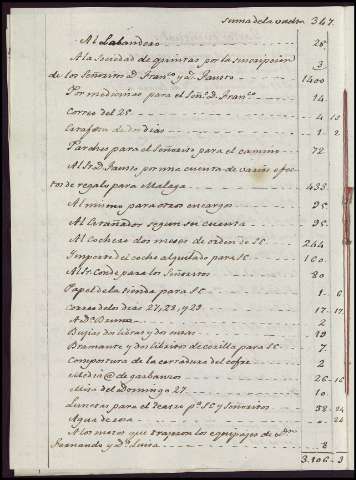 Suma de la vuelta 347.
Al Labandero 25
A la Sociedad de quintas por la suscripcion 3
de los Señoritos Dn. Franco y Dn. Fausto 1400
Por medicinas para el Señor Dn. Franco 14
Correo del 25 4
de dos dias 1
Parches para el Señorito para el camino 72
Al Sr. Dn. Fausto por una cuenta de varios efec
tos de regalo para Malaga 433
Al mismo para otros encargos 95
Al segun su cuenta 95
Al Cochero dos meses de orden de S.E. 244
Importe del coche alquilado para S.E. 160
Al Sr. Conde para los Señoritos 80
Papel de la tienda para S.E. 1 6
Correo de los dias 27, 28, y 29 17 17
A Dn. Bruno 2
Bujias dos libras y dos mazos 19
Bramante y dos libritos de cerilla para S.E. 7
Compostura de la cerradura del cofre 2
Media @ de garbanzos 26 16
Misa del Domingo 27 10
Lunetas para el Teatro pa. S.E. y Señoritos 38 24
Agua de rosa 24
A los mozos que trajeron los equipajes de Dn.
Fernando y Da. Luisa 8
3.106 3